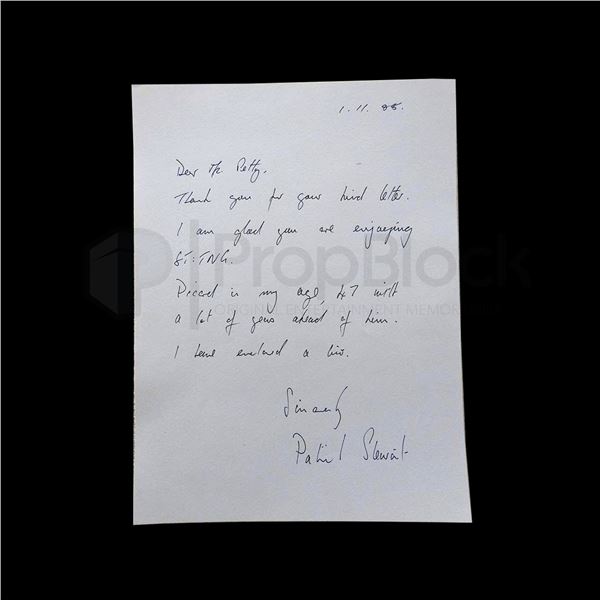 1.11.88.
Dear Mr. Petty.
Thank you for your kind letter.
I am glad you are enjoying
ST:TNG.
Picard is my age, 47 with
a lot of years ahead of him.
I have enclosed a bio.
Sincerely
Patrick Stewart
PropBlock
ORIGINAL ENTERTAINMENT MEMORABILIA